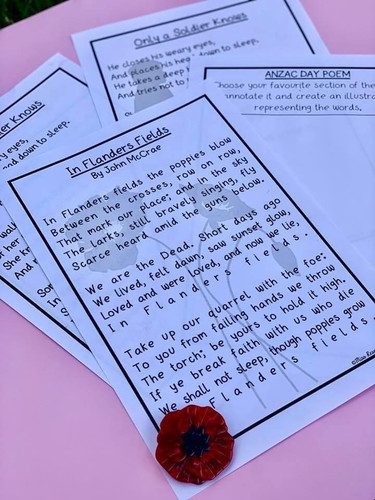 Only a Soldier Knows
He closes his weary eyes,
And places his head down to sleep.
He takes a deep
And tries not to
Knows
eyes,
and down to sleep.
ANZAC DAY POEM
Choose your favourite section of the
annotate it and create an illustra
representing the words.
In Flanders Fields
By John McCrae
In Flanders fields the poppies blow
Between the crosses, row on row,
That mark our place; and in the sky
The larks, still bravely singing, fly
Scarce heard amid the guns below.
We are the Dead. Short days ago
We lived, felt dawn, saw sunset glow,
Loved and were loved, and now we lie,
In Flanders fields.
Take up our quarrel with the foe:
To you from failing hands we throw
The torch; be yours to hold it high.
If ye break faith with us who die
We shall not sleep, though poppies grow
Flanders fields.